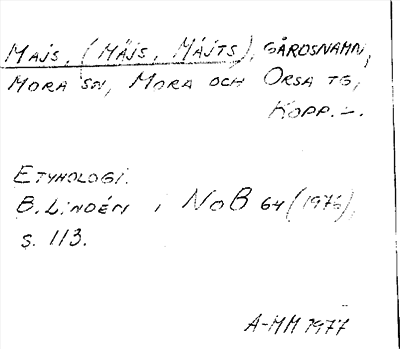 MAJS, (MÅJS, MÁJTS), GÅRDSNAMN,
MORA SN, MORA OCH ORSA TG,
KOPP. L.
ETYMOLOGI.
B. LINDÉN i NoB 64 (1976),
S. 113.
A-MM 1977